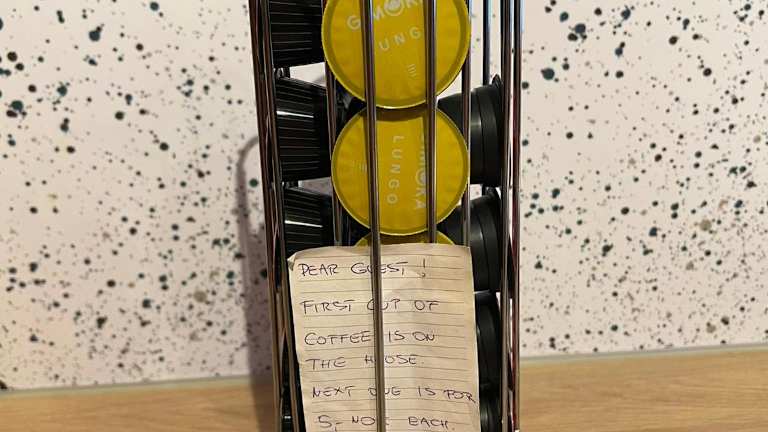 GIMOKA
LUNGO
GIMOKA
LUNGO
DEAR GUEST!
FIRST CUP OF
COFFEE IS ON
THE HOUSE.
NEXT ONE IS FOR
5,- NOK EACH.